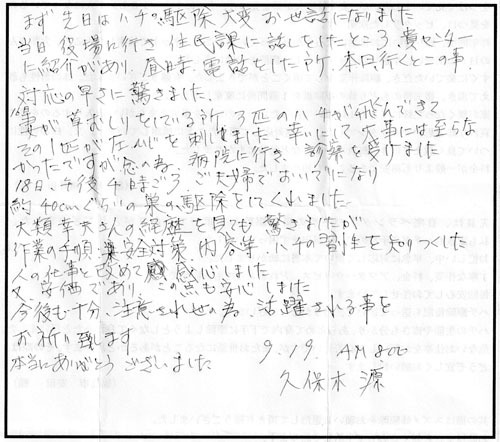 まず先日はハチ駆除大変お世話になりました
当日役場に行き住民課に話しをしたところ、貴センター
に紹介があり、昼時、電話をした所、本日行くとの事、
対応の早さに驚きました。
妻が草むしりをしている所、3匹のハチが飛んできて
その1匹が左んじを刺しました。幸いにして大事には至らな
かったですが念の為、病院に行き、診察を受けました
18日、午後4時ごろご夫婦でおいでになり
約40cmぐらいの巣の駆除をしてくれました
大類幸夫さんの経歴を見ても驚きましたが
作業の手順、安全対策、内容等、ハチの習性を知りつくした
人の仕事と改めて感心しました
又、安価であり、この点も安心しました
今後も十分、注意されせの為、活躍される事を
お祈り致します
本当にありがとうございました
9.19. AM 8:00
久保木 源